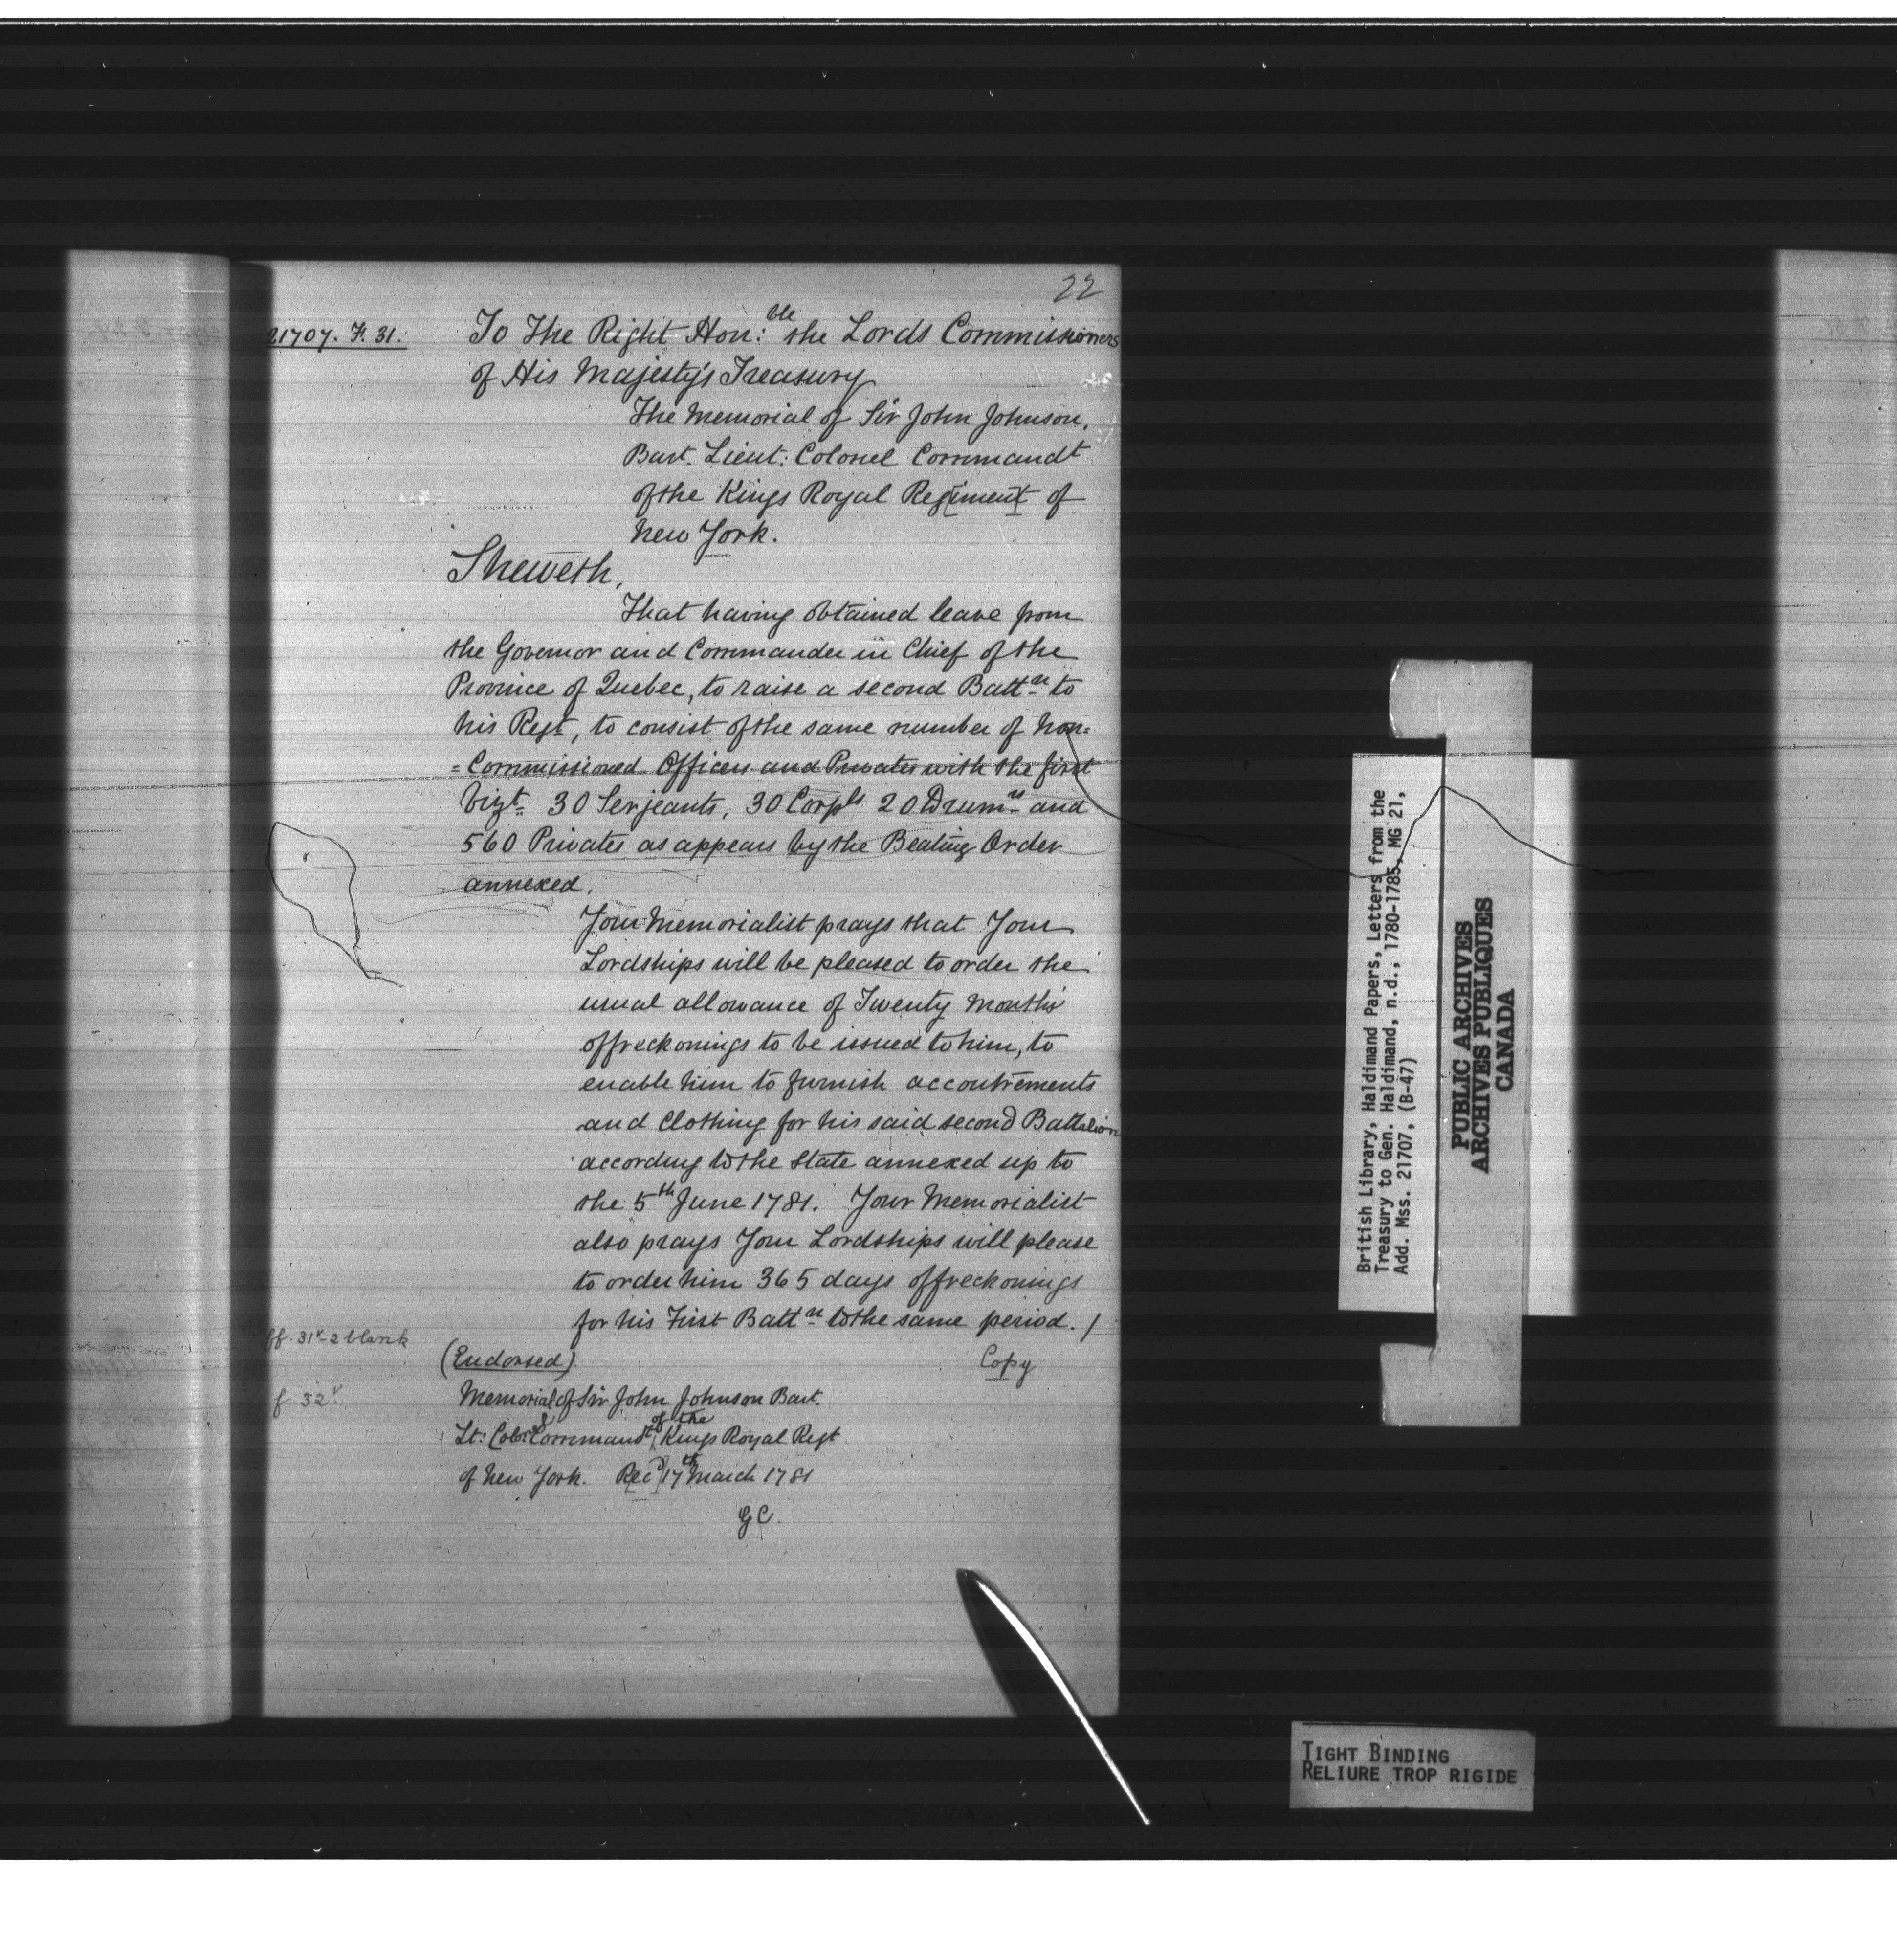 22
21707. F. 31.
To The Right Hon:ble the Lords Commissioners
of His Majesty's Treasury
The Memorial of Sir John Johnson,
Bart. Lieut: Colonel Commandt
of the Kings Royal Regiment of
New York.
Sheweth,
That having obtained leave from
the Governor and Commander in Chief of the
Province of Quebec, to raise a second Battn to
his Regt, to consist of the same number of Non=
=Commissioned Officers and Privates with the first
Vizt 30 Serjeants, 30 Corpls 20 Drumrs and
560 Privates as appears by the Beating Order
annexed.
Your Memorialist prays that Your
Lordships will be pleased to order the
usual allowance of Twenty Months'
offreckonings to be issued to him, to
enable him to furnish accoutrements
and Clothing for his said second Battalion
according to the State annexed up to
the 5th June 1781. Your Memorialist
also prays Your Lordships will please
to order him 365 days offreckonings
for his First Battn to the same period. /
ff. 31v-2 blank
(Endorsed)
Copy
f. 32v
Memorial of Sir John Johnson Bart.
Lt: Colol Commandt of the Kings Royal Regt
of New York. Recd 17th March 1781
GC.
British Library, Haldimand Papers, Letters from the
Treasury to Gen. Haldimand, n.d., 1780-1785, MG 21,
Add. Mss. 21707, (B-47)
PUBLIC ARCHIVES
ARCHIVES PUBLIQUES
CANADA
TIGHT BINDING
RELIURE TROP RIGIDE